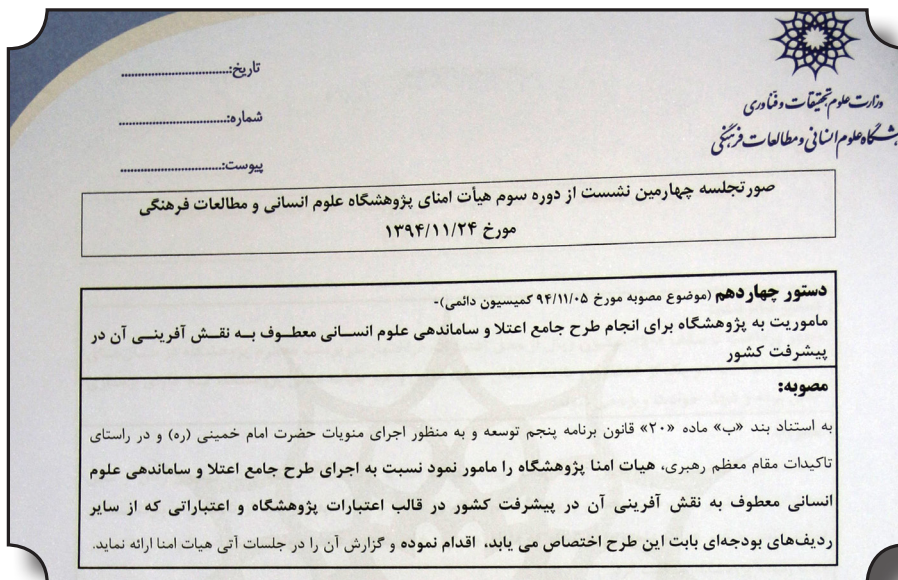 وزارت علوم تحقیقات و فناوری
علوم انسانی و مطالعات فرهنگی
تاریخ:................................
شماره:................................
پیوست:..............................
صورتجلسه چهارمین نشست از دوره سوم هیأت امنای پژوهشگاه علوم انسانی و مطالعات فرهنگی
مورخ ۱۳۹۴/۱۱/۲۴
دستور چهاردهم (موضوع مصوبه مورخ ۹۴/۱۱/۰۵ کمیسیون دائمی)-
ماموریت به پژوهشگاه برای انجام طرح جامع اعتلا و ساماندهی علوم انسـانی معطـوف بـه نقـش آفرینـی آن در
پیشرفت کشور
مصوبه:
به استناد بند «ب» ماده «۲۰» قانون برنامه پنجم توسعه و به منظور اجرای منویات حضرت امام خمینی (ره) و در راستای
تاکیدات مقام معظم رهبری، هیات امنا پژوهشگاه را مامور نمود نسبت به اجرای طرح جامع اعتلا و ساماندهی علوم
انسانی معطوف به نقش آفرینی آن در پیشرفت کشور در قالب اعتبارات پژوهشگاه و اعتباراتی که از سایر
ردیف‌های بودجه‌ای بابت این طرح اختصاص می یابد، اقدام نموده و گزارش آن را در جلسات آتی هیات امنا ارائه نماید.